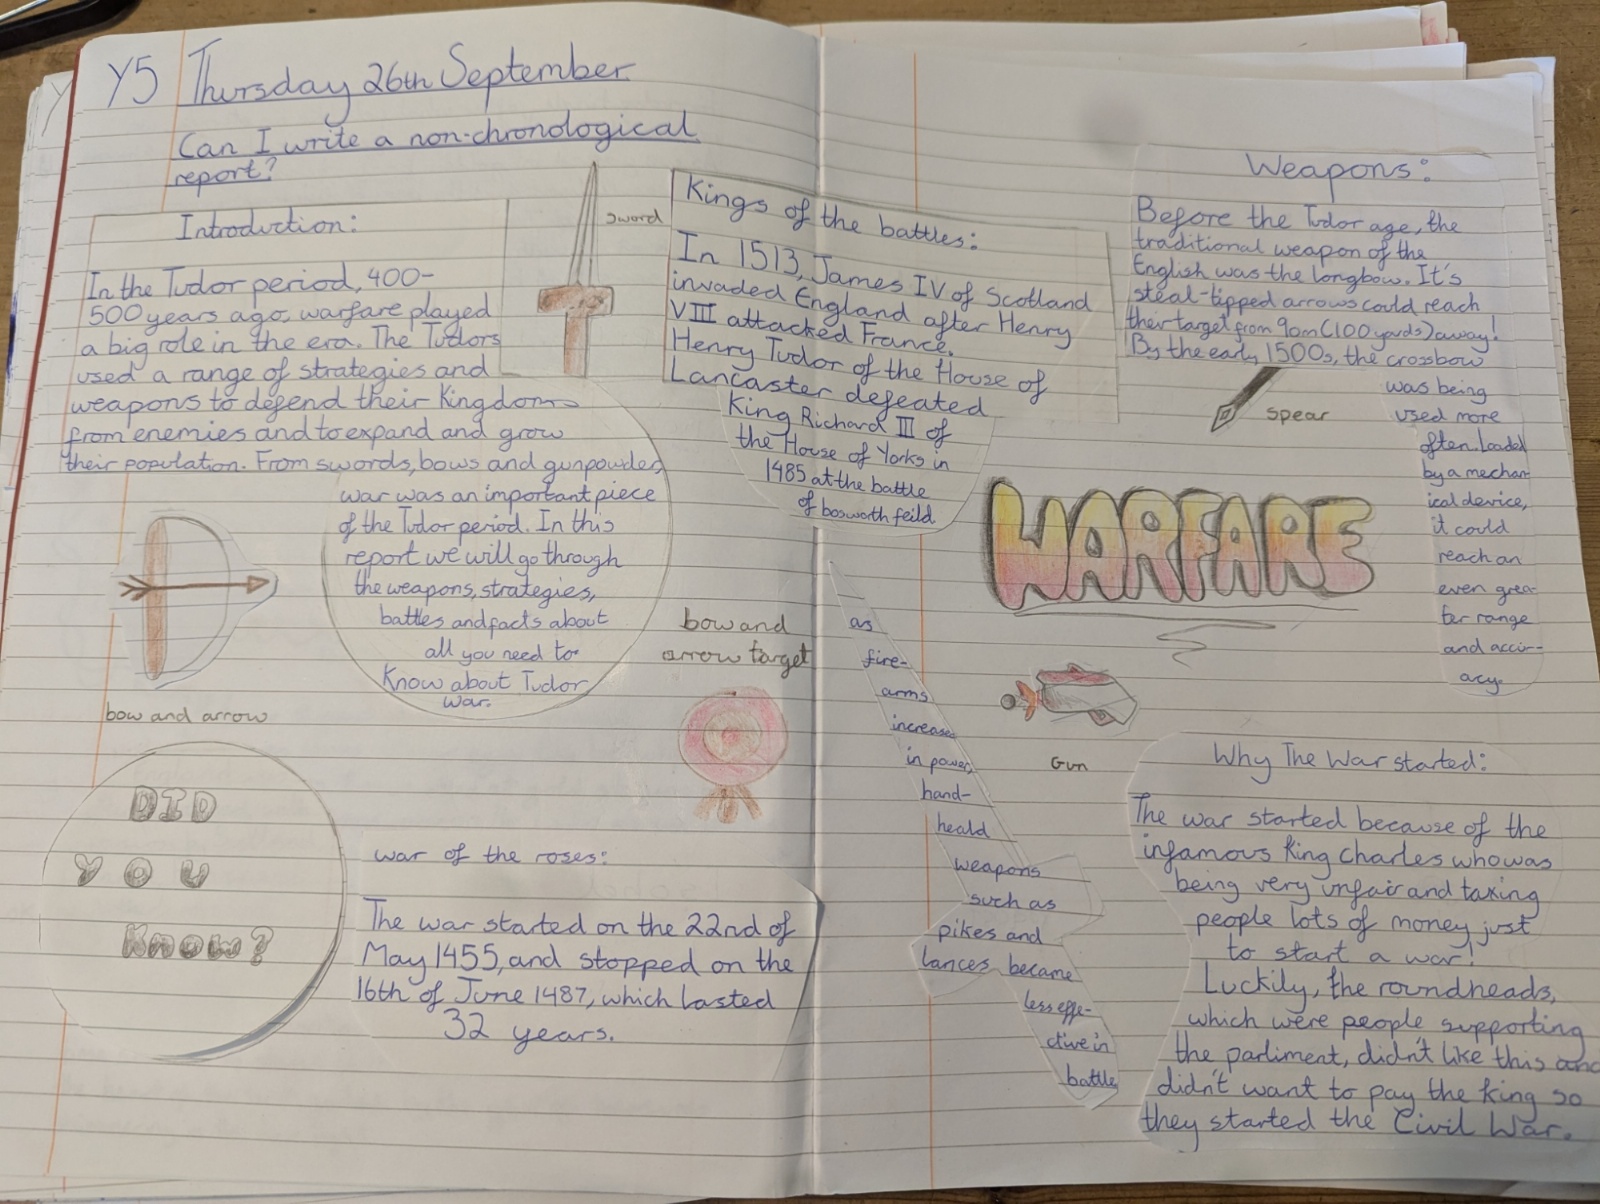 Y5 Thursday 26th September
Can I write a non-chronological
report?
Introduction:
In the Tudor period, 400-
500 years ago, warfare played
a big role in the era. The Tudors
used a range of strategies and
weapons to defend their Kingdoms
from enemies and to expand and grow
their population. From swords, bows and gunpowder,
war was an important piece
of the Tudor period. In this
report we will go through
the weapons, strategies,
battles and facts about
all you need to
Know about Tudor
war.
sword
bow and arrow
DID
YOU
KNOW?
war of the roses:
The war started on the 22nd of
May 1455, and stopped on the
16th of June 1487, which lasted
32 years.
Kings of the battles:
In 1513, James IV of Scotland
invaded England after Henry
VIII attacked France.
Henry Tudor of the House of
Lancaster defeated
King Richard III of
the House of Yorks in
1485 at the battle
of bosworth feild.
bow and
arrow target
as
fire-
arms
increased
in power,
hand-
heald
weapons
such as
pikes and
lances became
less effe-
ctive in
battle
WARFARE
Gun
Weapons:
Before the Tudor age, the
traditional weapon of the
English was the longbow. It's
steal-tipped arrows could reach
their target from 90m (100 yards) away!
By the early 1500s, the crossbow
was being
used more
often. Loaded
by a mechan-
ical device,
it could
reach an
even grea-
ter range
and accur-
acy.
Spear
Why The War started:
The war started because of the
infamous King Charles who was
being very unfair and taxing
people lots of money just
to start a war!
Luckily, the roundheads,
which were people supporting
the parliment, didn't like this and
didn't want to pay the king so
they started the Civil War.